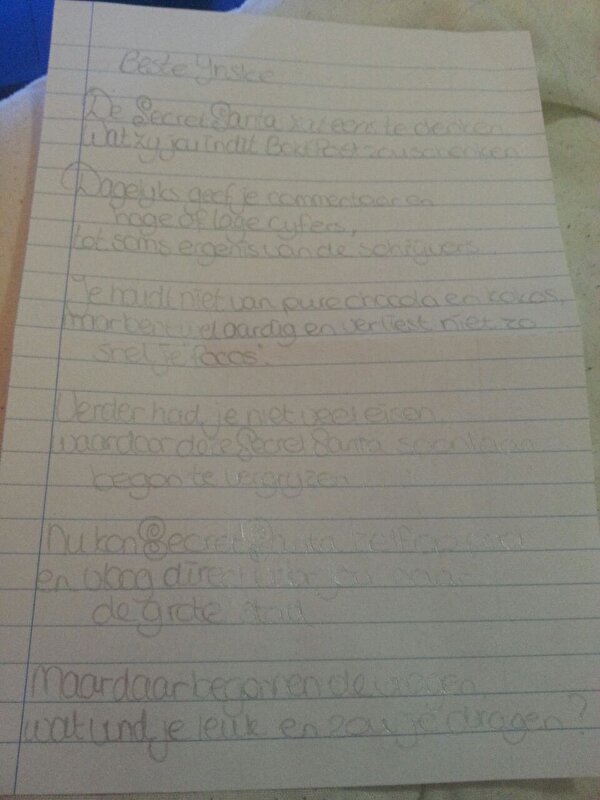 Beste Ynske
De Secret Santa zit eens te denken
Wat zy jou in dit Boekpost zou schenken
Dagelyks geef je commentaar en
hoge of lage cyfers,
tot soms ergenis van de schryvers
Je houdt niet van pure chocola en kokos,
maar bent wel aardig en verliest niet zo
snel je 'focos'.
Verder had je niet veel eisen,
waardoor deze Secret Santa spontaan
begon te vergryzen
Nu kon Secret Santa zelf op
en vloog direct naar
de grote stad
Maar daar begonnen de vragen
wat vind je leuk en zou je dragen?